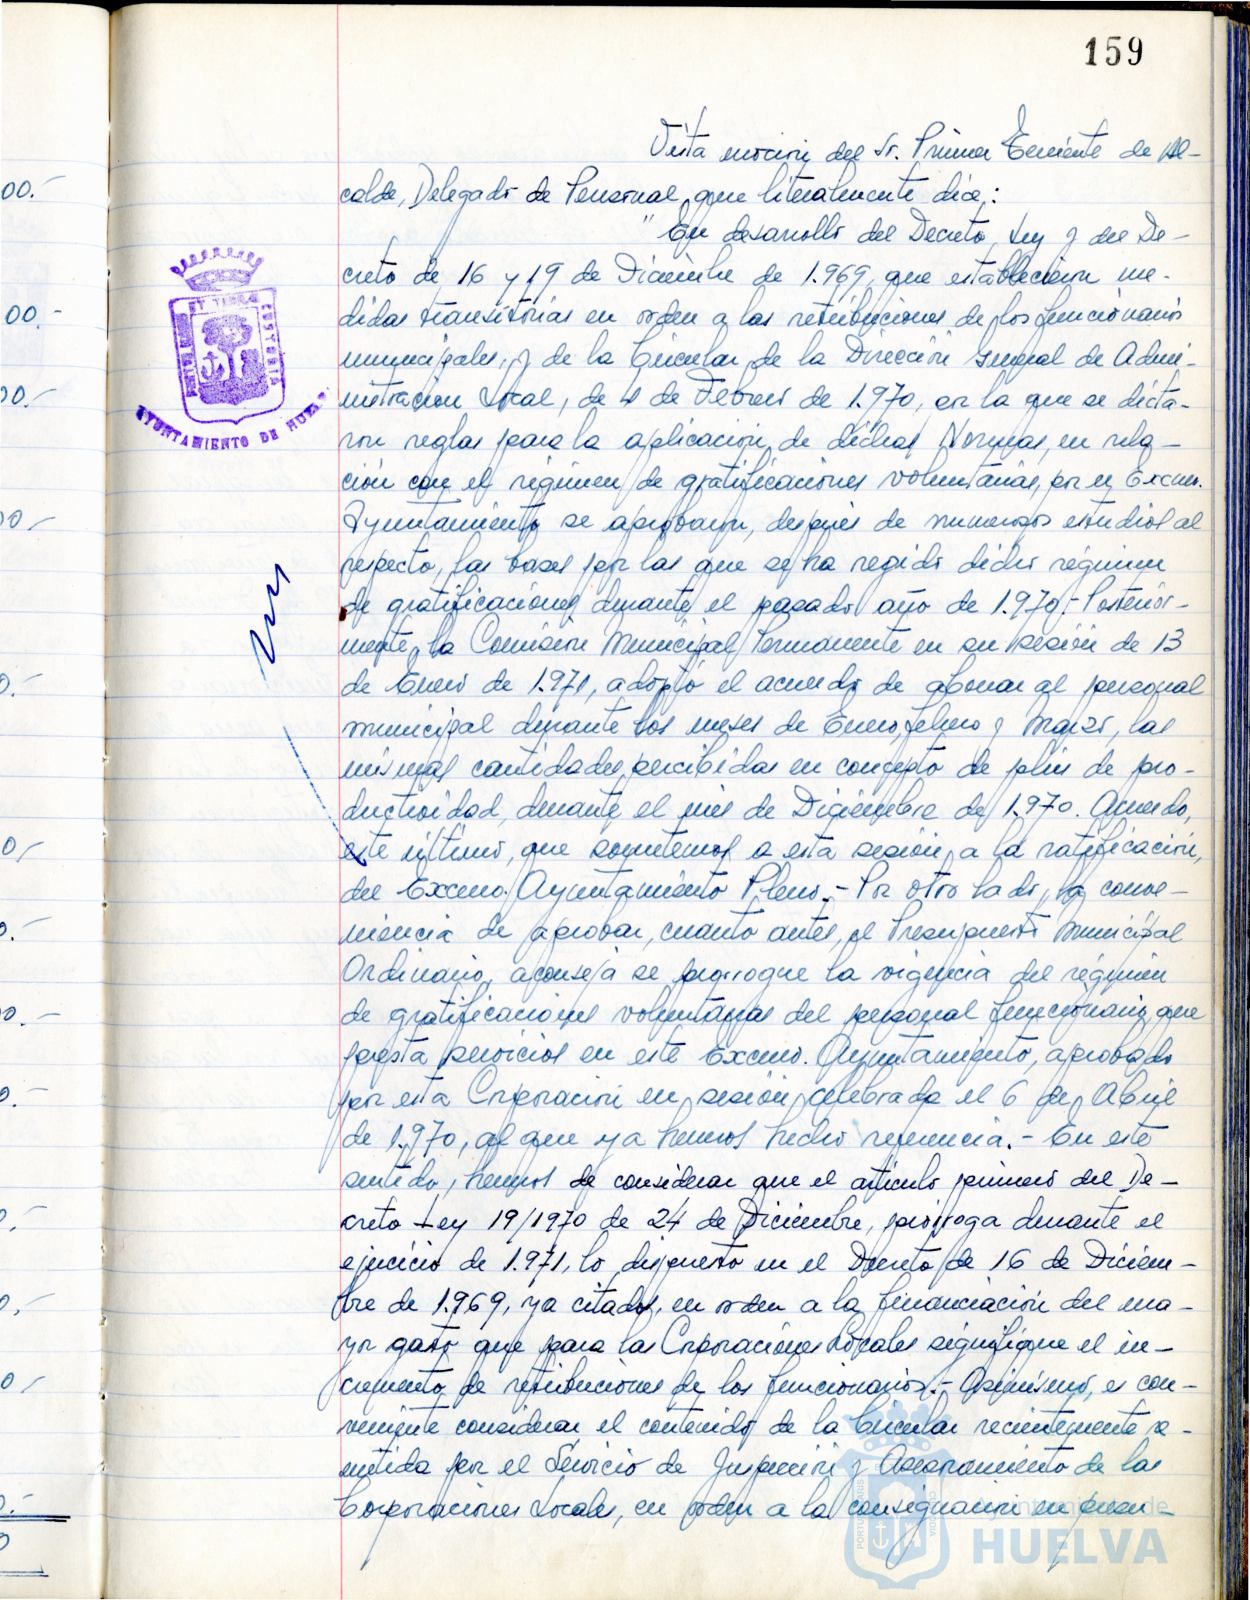 159
Vista moción del Sr. Primer Teniente de Al-
calde, Delegado de Personal, que literalmente dice:
"En desarrollo del Decreto Ley y del De-
creto de 16 y 19 de Diciembre de 1.969, que establecieron me-
didas transitorias en orden a las retribuciones de los funcionarios
municipales, y de la Circular de la Dirección General de Admi-
nistración Local, de 4 de Febrero de 1.970, en la que se dicta-
ron reglas para la aplicación de dichas Normas, en rela-
ción con el régimen de gratificaciones voluntarias, por el Excmo.
Ayuntamiento se aprobaron, después de numerosos estudios al
respecto, las bases por las que se ha regido dicho régimen
de gratificaciones durante el pasado año de 1.970.- Posterior-
mente, la Comisión Municipal Permanente en su sesión de 13
de Enero de 1.971, adoptó el acuerdo de abonar al personal
municipal durante los meses de Enero, Febrero y Marzo, las
mismas cantidades percibidas en concepto de plus de pro-
ductividad, durante el mes de Diciembre de 1.970. Acuerdo,
este último, que sometemos a esta sesión, a la ratificación,
del Excmo. Ayuntamiento Pleno.- Por otro lado, la conve-
niencia de aprobar, cuanto antes, el Presupuesto Municipal
Ordinario, aconseja se prorrogue la vigencia del régimen
de gratificaciones voluntarias del personal funcionario, que
presta servicios en este Excmo. Ayuntamiento, aprobado
por esta Corporación en sesión celebrada el 6 de Abril
de 1.970, al que ya hemos hecho referencia.- En este
sentido, hemos de considerar que el artículo primero del De-
creto-Ley 19/1970 de 24 de Diciembre, prorroga durante el
ejercicio de 1.971, lo dispuesto en el Decreto de 16 de Diciem-
bre de 1.969, ya citado, en orden a la financiación del ma-
yor gasto que para las Corporaciones Locales signifique el in-
cremento de retribuciones de los funcionarios.- Asimismo, es con-
veniente considerar el contenido de la Circular recientemente re-
mitida por el Servicio de Inspección y Asesoramiento de las
Corporaciones Locales, en orden a la consignación en presu-
AYUNTAMIENTO DE HUELVA
Ayuntamiento de
HUELVA